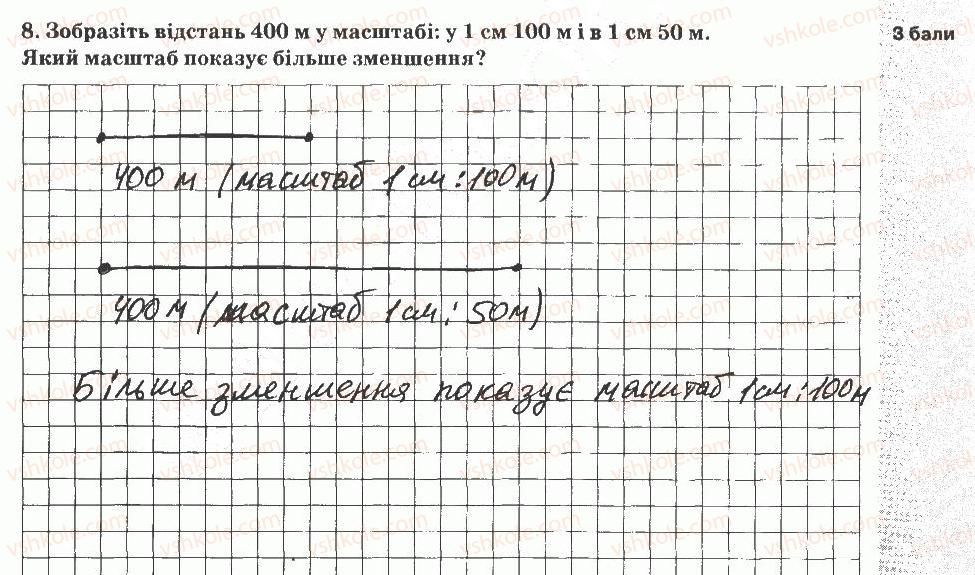 8. Зобразіть відстань 400 м у масштабі: у 1 см 100 м і в 1 см 50 м.
Який масштаб показує більше зменшення?
3 бали
400 м (масштаб 1 см : 100 м)
400 м (масштаб 1 см : 50 м)
Більше зменшення показує масштаб 1 см : 100 м